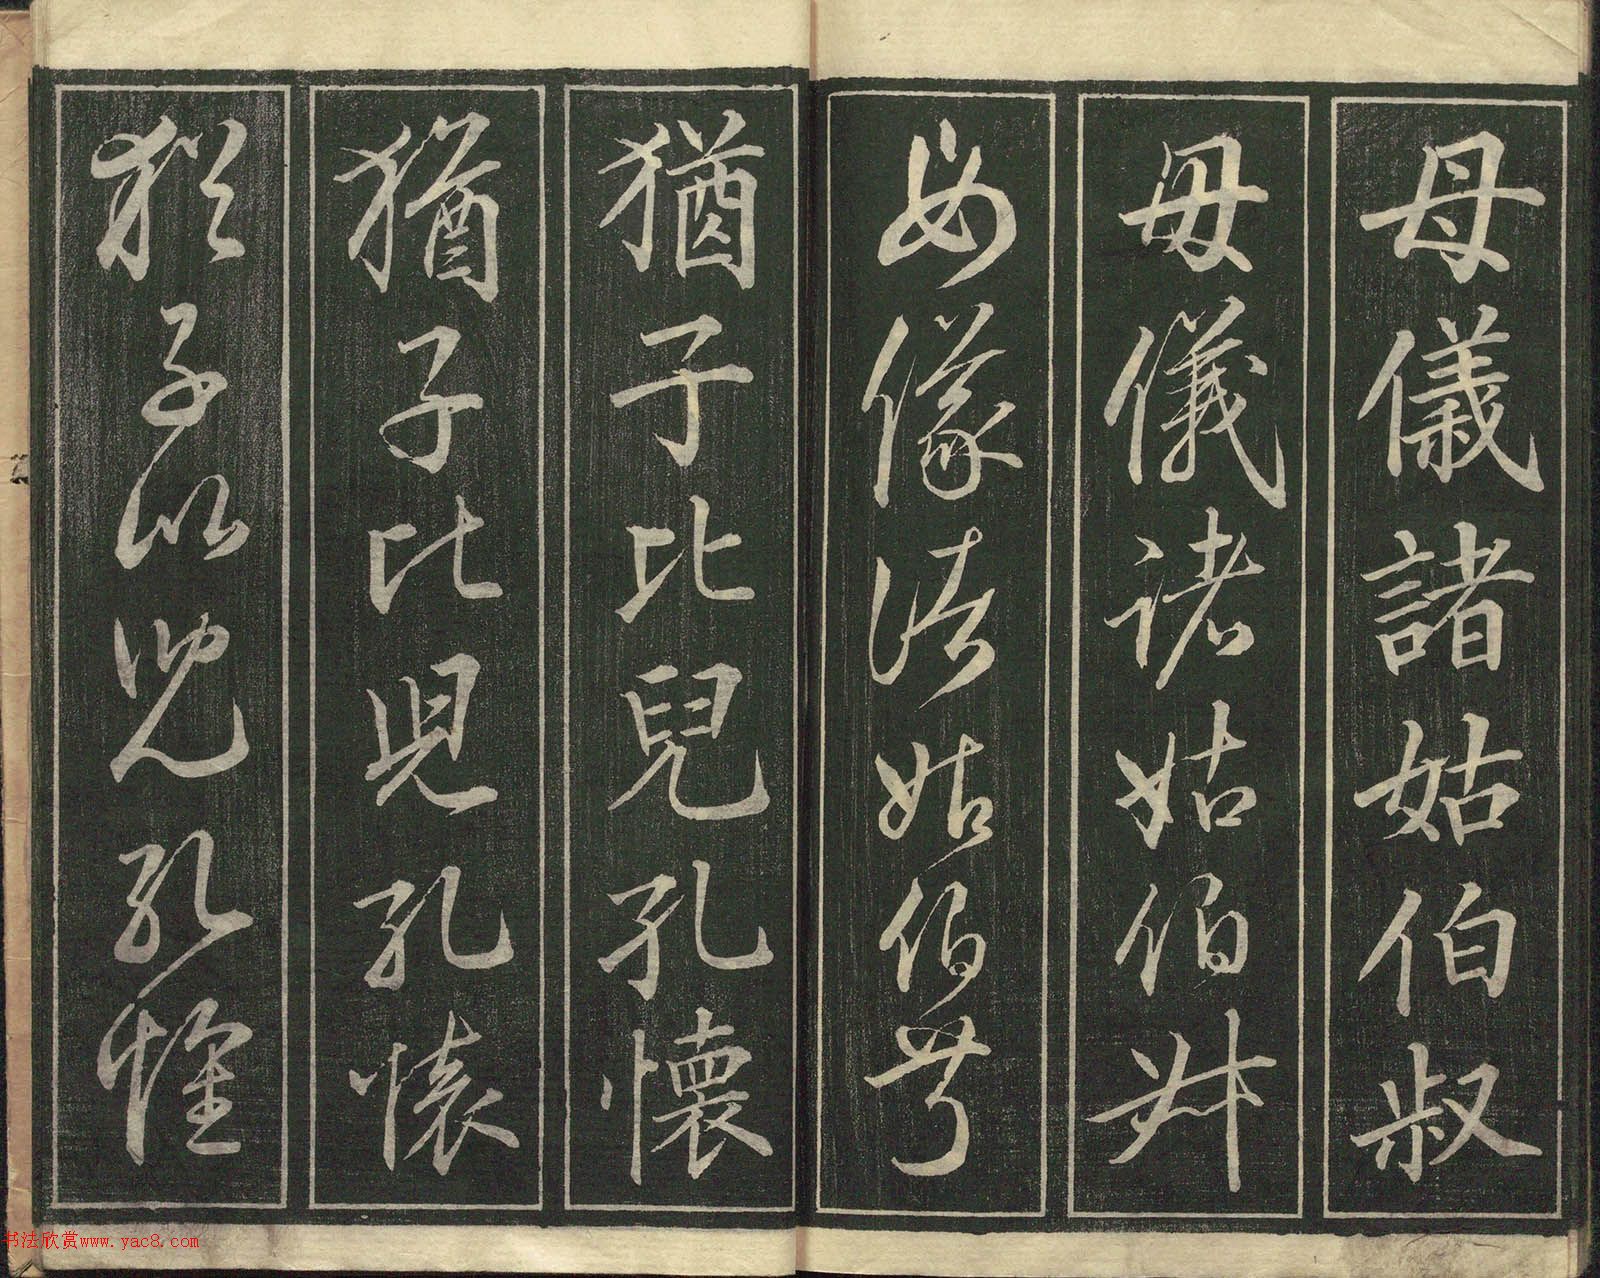 母儀諸姑伯叔
母儀諸姑伯叔
母儀諸姑伯叔
猶子比兒孔懷
猶子比兒孔懷
猶子比兒孔懷
书法欣赏www.yac8.com